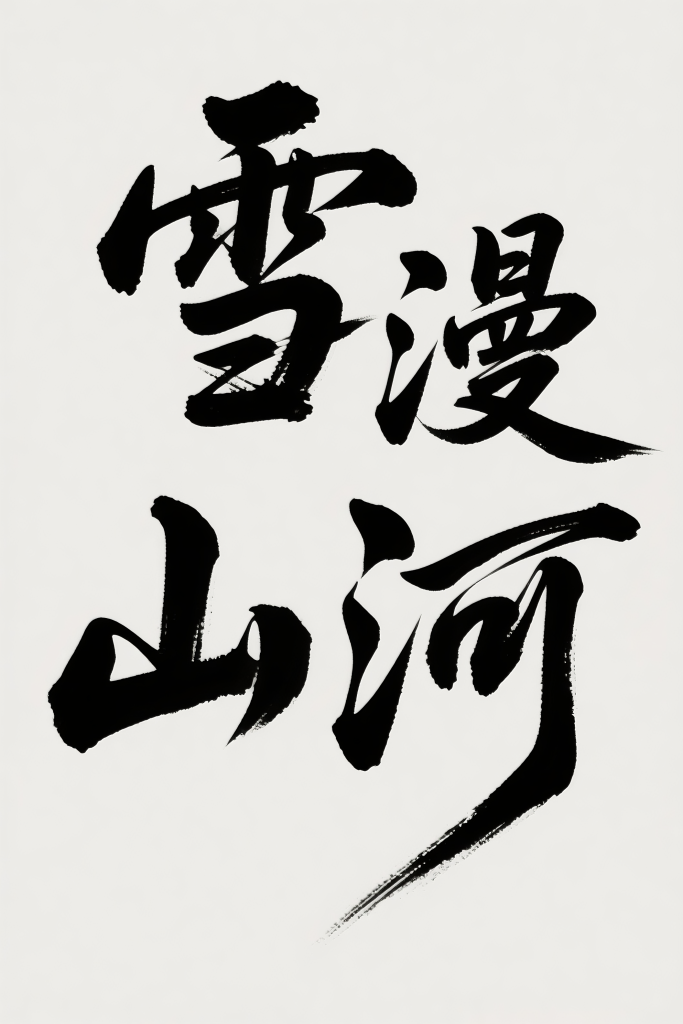 雪漫
山河